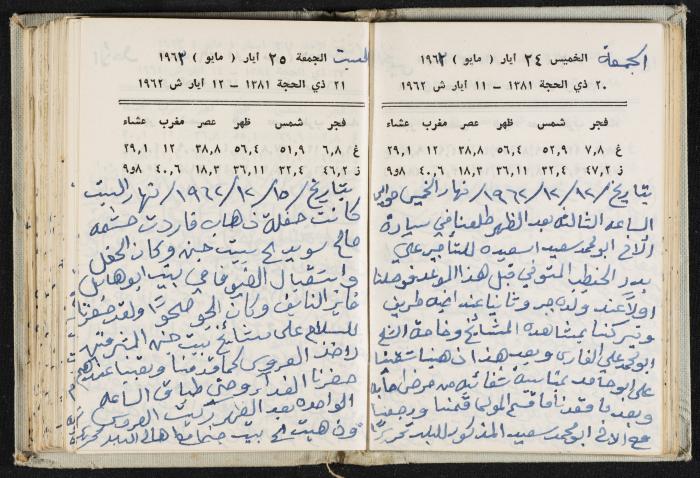 الجمعة
الخميس ٢٤ أيار ( مايو ) ١٩٦٢
٢٠ ذي الحجة ١٣٨١ – ١١ أيار ش ١٩٦٢
فجر شمس ظهر عصر مغرب عشاء
غ ٧,٨ ٥٢,٩ ٥٦,٤ ٣٨,٨ ١٢ ٢٩,١
ز ٤٧,٢ ٣٢,٤ ٣٦,١١ ١٨,٣ ٤٠,٦ ٨و٩
بتاريخ /١٢/١٢/١٩٦٢ نهار الخميس حوالي
الساعه الثالثه بعد الظهر طلعنا في سيارة
الأخ ابو محمد سعيد اسعيده للتأجير علي
بدر الحطب المتوفي قبل هذا الموعد فوصلنا
اولاً عند ولده جبر وثانيا عند اخيه طريف
وتبركنا بمشاهدة المشائخ وخاصة الشيخ
ابو محمد علي الفارس وبعد هذا ذهبنا
على ابو حامد بمناسبة شفائه من مرض
وبعد ما قمنا ورجعنا
مع الأخ ابو محمد سعيد المذكور للبلد تحريراً
السبت
الجمعة ٢٥ أيار ( مايو ) ١٩٦٣
٢١ ذي الحجة ١٣٨١ – ١٢ أيار ش ١٩٦٢
فجر شمس ظهر عصر مغرب عشاء
غ ٦,٨ ٥١,٩ ٥٦,٤ ٣٨,٨ ١٢ ٢٩,١
ز ٤٦,٢ ٣٢,٤ ٣٦,١١ ١٨,٣ ٤٠,٦ ٨و٩
بتاريخ /١٥/١٢/١٩٦٢/ نهار السبت
كانت حفلة ذهاب فاردت حشمه
صالح سويد لـ بيت جن وكان الحفل
واستقبال الضيوف في بيت ابو هايل
فايز النايف وكان الجو صحو ولقد حضرنا
للسلام على مشائخ بيت جن
لأخذ العروس كما قدمنا وبقينا عند
حضرنا الغداء وحتى طباق الساعه
الواحده بعد الظهر ركبت العروس
وذهبت لـ بيت جن